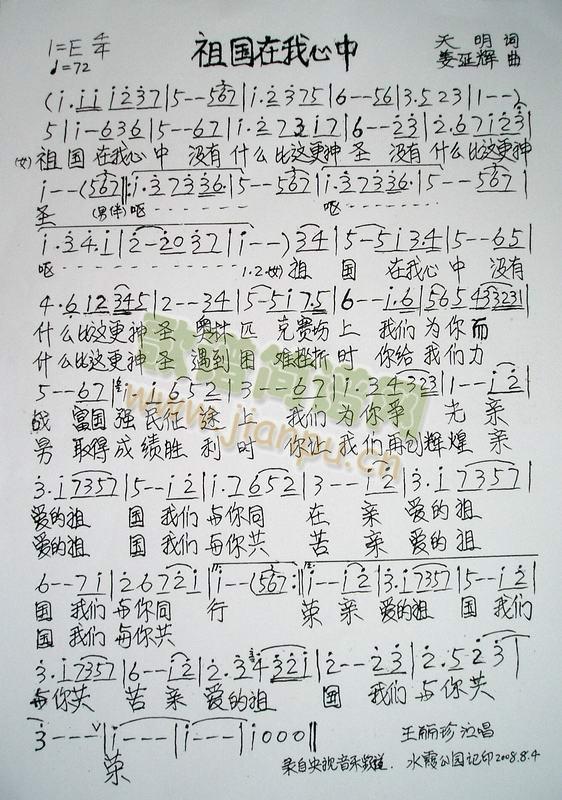 1=E 4/4
♩=72
祖国在我心中
天明 词
姜延辉 曲
(i·ii i237|5--567|i·2375|6--56|3·523|1--)
5|i-636|5--67|i·273i7|6--23|2·67i23|
(女)祖 国 在我心 中 没有 什么 比这更神 圣 没有 什么 比这更神
i--(567‖:i·37336·|5--567|i·37336·|5--567|
圣 (男伴)呕 - - - - - - 呕 - - - - - -
i·34·i|2-2037|i--)34|5-5i34|5--65|
呕 - - - - - - 1.2.(女)祖 国 在我心 中 没有
4·612345|2--34|5-5i7·5|6--i·6|565433231|
什么比这更神 圣 奥林 匹 克赛场 上 我们 为你 而
什么比这更神 圣 遇到 困 难挫折 时 你给 我们 力
5--67|i·6652|3--67|i·34323|1--i2|
战 富国 强 民征途 上 我们 为你争 光 亲
另 取得 成 绩胜 利 时 你让 我们再创辉 煌 亲
3·i7357|5--i2|i·7652|3--i2|3·i7357|
爱的祖 国 我们 与你同 在 亲 爱的祖
爱的祖 国 我们 与你共 苦 亲 爱的祖
6--7i|2672i|i--(567:‖i--i2|3·i7357|5--i2|
国 我们 与你同 行 荣 亲 爱的祖 国 我们
国 我们 与你共
3·i7357|6--i2|2·3432i|2--23|2·523|
与你共 苦 亲 爱的祖 国 我们 与你共
3---ˇ|i---|i---|i000‖
荣
王丽珍 泣唱
录自央视音乐频道. 水霞公园记印2008.8.4
歌谱简谱网
www.jianpu.cn